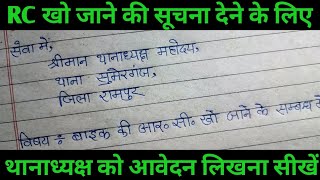 RC खो जाने की सूचना देने के लिए
सेवा में,
श्रीमान थानाध्यक्ष महोदय,
थाना सुमेरगंज,
जिला रामपुर
विषय : बाइक की आर॰ सी॰ खो जाने के सम्बन्ध में
थानाध्यक्ष को आवेदन लिखना सीखें